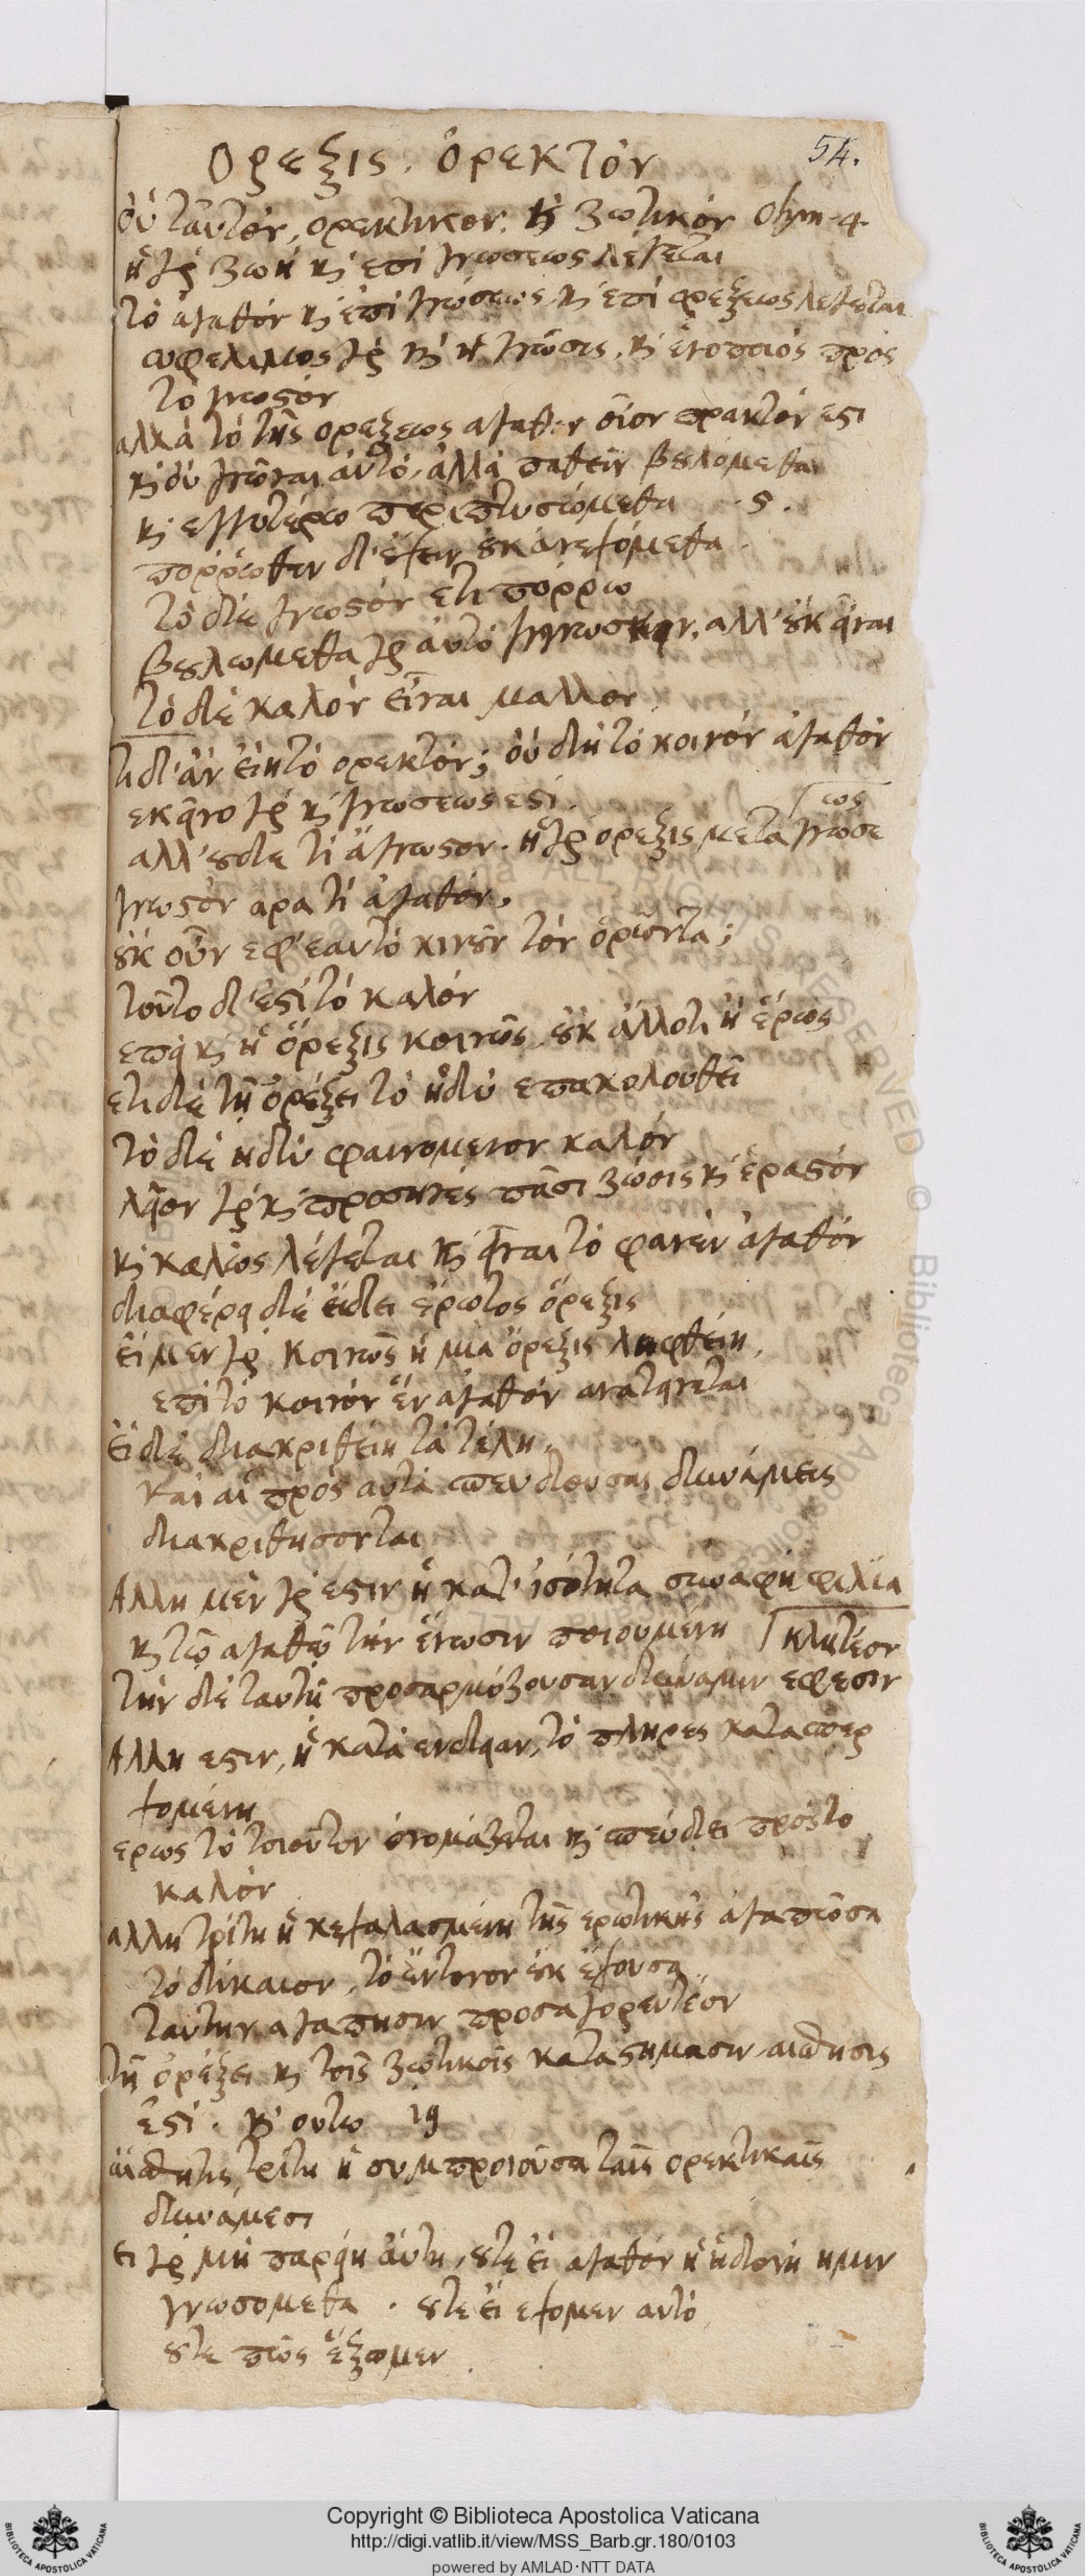 Ορεξις. ὀρεκτὸν
54.
οὐ ταυτὸν, ορεκτικον. κὶ ζωτικὸν Olym. 4.
ἡ γὸ ζωὴ κὶ επὶ γνωσεως λέγεται
τὸ ἀγαθὸν κὶ ἐπὶ γνώσεως κὶ ἐπὶ ορέξεως λεγεται
ωφελιμος γὸ κὶ ἡ γνῶσις. κὶ ἑνοποιός πρὸς
τὸ γνωστὸν
αλλὰ τὸ τῆς ορεξεως αγαθον οἷον πρακτόν εστι
κὶ οὐ γνῶναι ἀυτὸ, ἀλλὰ παθεῖν βουλόμεθα
κὶ εγγυτέρω περιπτυσσόμεθα . 5.
πορρωθεν δ' ἔχειν οὐκ ἀνεχόμεθα.
τὸ δὲ γνωστὸν ετι πόρρω
βουλωμεθα γὸ αυτὸ γιγνωσκειν, αλλ' οὐκ εἶναι
τὸ δὲ καλὸν εἶναι μαλλον
τι δ' ἀν εἴη τὸ ορεκτόν; οὐ δὴ τὸ κοινὸν ἀγαθὸν
εκεῖνο γὸ κὶ γνωσεως εστὶ.
αλλ' ουδε τὶ ἄγνωστον. ἡ γὸ ορεξις μετα γνωσε
ως
γνωστὸν αρα τὶ ἀγαθόν.
οὐκ οὖν εφ' εαυτὸ κινοῦν τὸν ὁρῶντα;
τοῦτο δ' εστὶ τὸ καλόν
επεὶ κὶ ἡ ὄρεξις κοινῶς, οὐκ ἄλλοτι ἢ ἔρως
ετι δὲ τῇ ὀρέξει τὸ ἡδὺ επακολουθεῖ
τὸ δὲ ἡδὺ φαινομενον καλόν
λεῖον γὸ κὶ προσηνες πᾶσι ζώοις κὶ ἐραστόν
κὶ καλῶς λέγεται κὶ εἶναι τὸ φανὲν ἀγαθόν
διαφέρει δὲ εἴδει ἔρωτος ὄρεξις
εἰ μεν γὸ κοινῶς ἡ μία ὄρεξις ληφθείη,
επὶ τὸ κοινὸν ἓν ἀγαθὸν ανατείνεται
εἰ δὲ διακριθείη τὰ τέλη,
καὶ αἱ πρὸς αυτὰ σπευδουσαι δυνάμεις
διακριθησονται
Αλλη μὲν γὸ εστιν ἡ κατ' ἰσότητα συναφὴ φιλία
κὶ τῷ αγαθῷ τὴν ἕνωσιν ποιουμένη
κλητέον
τὴν δὲ ταυτῃ προσαρμόζουσαν δύναμιν εφεσιν
Αλλη εστιν, ἡ κατὰ ενδειαν, τὸ πληρες κατασπερ
χομένη
ερως τὸ τοιοῦτον ὀνομάζεται κὶ σπεύδει πρὸς το
καλὸν
αλλη τρίτη ἡ κεχαλασμένη τῆς ερωτικῆς ἀγαπῶσα
τὸ δίκαιον, τὸ ἔντονον οὐκ ἔχουσα
ταυτην αγαπησιν προσαγορευτέον
τῇ ὀρέξει κὶ τοῖς ζωτικοῖς κατασημασιν αισθησις
ἐστὶ. κὶ ουτω 19
ἀισθητης τρίτη ἡ συμπροιοῦσα ταῖς ορεκτικαῖς
δυνάμεσι
ει γὸ μὴ παρείη ἀύτη, ουτε εἰ αγαθον ἡ ἡδονὴ ημιν
γνωσομεθα . ουτε εἰ εχομεν αυτὸ
ουτε πῶς ἕξομεν
Copyright © Biblioteca Apostolica Vaticana
http://digi.vatlib.it/view/MSS_Barb.gr.180/0103
powered by AMLAD·NTT DATA